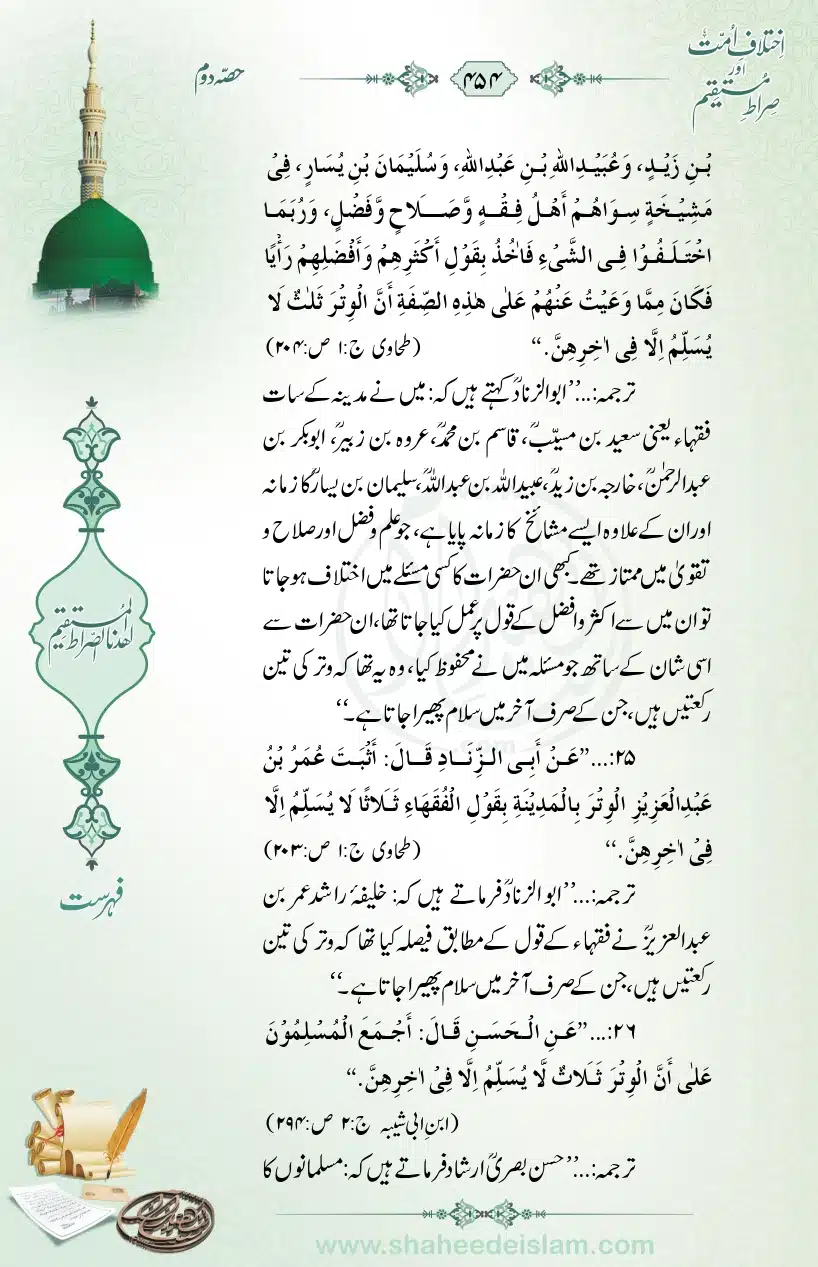 اِختلافِ اُمّت
اور
صِراطِ مُستقیم
۴۵۴
حصّہ دوم
بْنِ زَیْدٍ، وَعُبَیْدِاللهِ بْنِ عَبْدِاللهِ، وَسُلَیْمَانَ بْنِ یُسَارٍ، فِیْ
مَشِیْخَةٍ سِوَاهُمْ أَهْلُ فِقْهٍ وَّصَلَاحٍ وَّفَضْلٍ، وَرُبَمَا
اخْتَلَفُوْا فِی الشَّیْءِ فَاٰخُذُ بِقَوْلِ أَکْثَرِهِمْ وَأَفْضَلِهِمْ رَأْیًا
فَکَانَ مِمَّا وَعَیْتُ عَنْهُمْ عَلٰی هٰذِهِ الصِّفَةِ أَنَّ الْوِتْرَ ثَلٰثٌ لَا
یُسَلِّمُ اِلَّا فِی اٰخِرِهِنَّ.“ (طحاوی ج:۱ ص:۲۰۴)
ترجمہ:…’’ابوالزنادؒ کہتے ہیں کہ: میں نے مدینہ کے سات
فقہاء یعنی سعید بن مسیّبؒ، قاسم بن محمدؒ، عروہ بن زبیرؒ، ابوبکر بن
عبدالرحمٰنؒ، خارجہ بن زیدؒ، عبیداللہ بن عبداللہؒ، سلیمان بن یسارؒ کا زمانہ
اور ان کے علاوہ ایسے مشائخ کا زمانہ پایا ہے، جو علم و فضل اور صلاح و
تقویٰ میں ممتاز تھے۔ کبھی ان حضرات کا کسی مسئلے میں اختلاف ہوجاتا
تو ان میں سے اکثر و افضل کے قول پر عمل کیا جاتا تھا، ان حضرات سے
اسی شان کے ساتھ جو مسئلہ میں نے محفوظ کیا، وہ یہ تھا کہ وتر کی تین
رکعتیں ہیں، جن کے صرف آخر میں سلام پھیرا جاتا ہے۔‘‘
۲۵:…”عَنْ أَبِی الزِّنَادِ قَالَ: أَثْبَتَ عُمَرُ بْنُ
عَبْدِالْعَزِیْزِ الْوِتْرَ بِالْمَدِیْنَةِ بِقَوْلِ الْفُقَهَاءِ ثَلَاثًا لَا یُسَلِّمُ اِلَّا
فِیْ اٰخِرِهِنَّ.“ (طحاوی ج:۱ ص:۲۰۳)
ترجمہ:…’’ابوالزنادؒ فرماتے ہیں کہ: خلیفۂ راشد عمر بن
عبدالعزیزؒ نے فقہاء کے قول کے مطابق فیصلہ کیا تھا کہ وتر کی تین
رکعتیں ہیں، جن کے صرف آخر میں سلام پھیرا جاتا ہے۔‘‘
۲۶:…”عَنِ الْحَسَنِ قَالَ: أَجْمَعَ الْمُسْلِمُوْنَ
عَلٰی أَنَّ الْوِتْرَ ثَلَاثٌ لَّا یُسَلِّمُ اِلَّا فِیْ اٰخِرِهِنَّ.“
(ابنِ ابی شیبہ ج:۲ ص:۲۹۴)
ترجمہ:…’’حسن بصریؒ ارشاد فرماتے ہیں کہ: مسلمانوں کا
اهْدِنَا الصِّرَاطَ الْمُسْتَقِیْمَ
فہرست
www.shaheedeislam.com